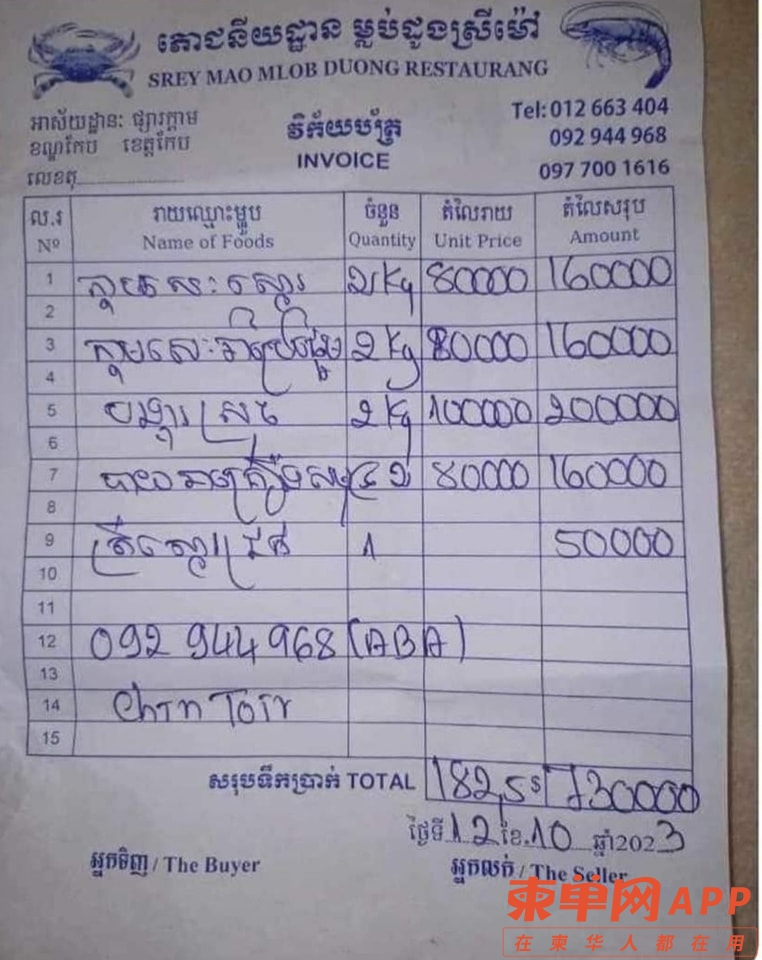 ភោជនីយដ្ឋាន ម្លប់ដូងស្រីម៉ៅ
SREY MAO MLOB DUONG RESTAURANG
អាស័យដ្ឋានៈ ផ្សារក្តាម
ខណ្ឌកែប ខេត្តកែប
លេខតុ
វិក័យប័ត្រ
INVOICE
Tel: 012 663 404
092 944 968
097 700 1616
ល.រ រាយឈ្មោះម្ហូប ចំនួន តំលៃរាយ តំលៃសរុប
Nº Name of Foods Quantity Unit Price Amount
1 2Kg 80000 160000
2
3 2Kg 80000 160000
4
5 2Kg 100000 200000
6
7 80000 160000
8
9 1 50000
10
11
12 092 944 968 (ABA)
13
14
15
សរុបទឹកប្រាក់ TOTAL 182,5$ 730000
ថ្ងៃទី 12 ខែ 10 ឆ្នាំ2023
អ្នកទិញ / The Buyer អ្នកលក់ / The Seller
柬单网APP
在柬华人都在用